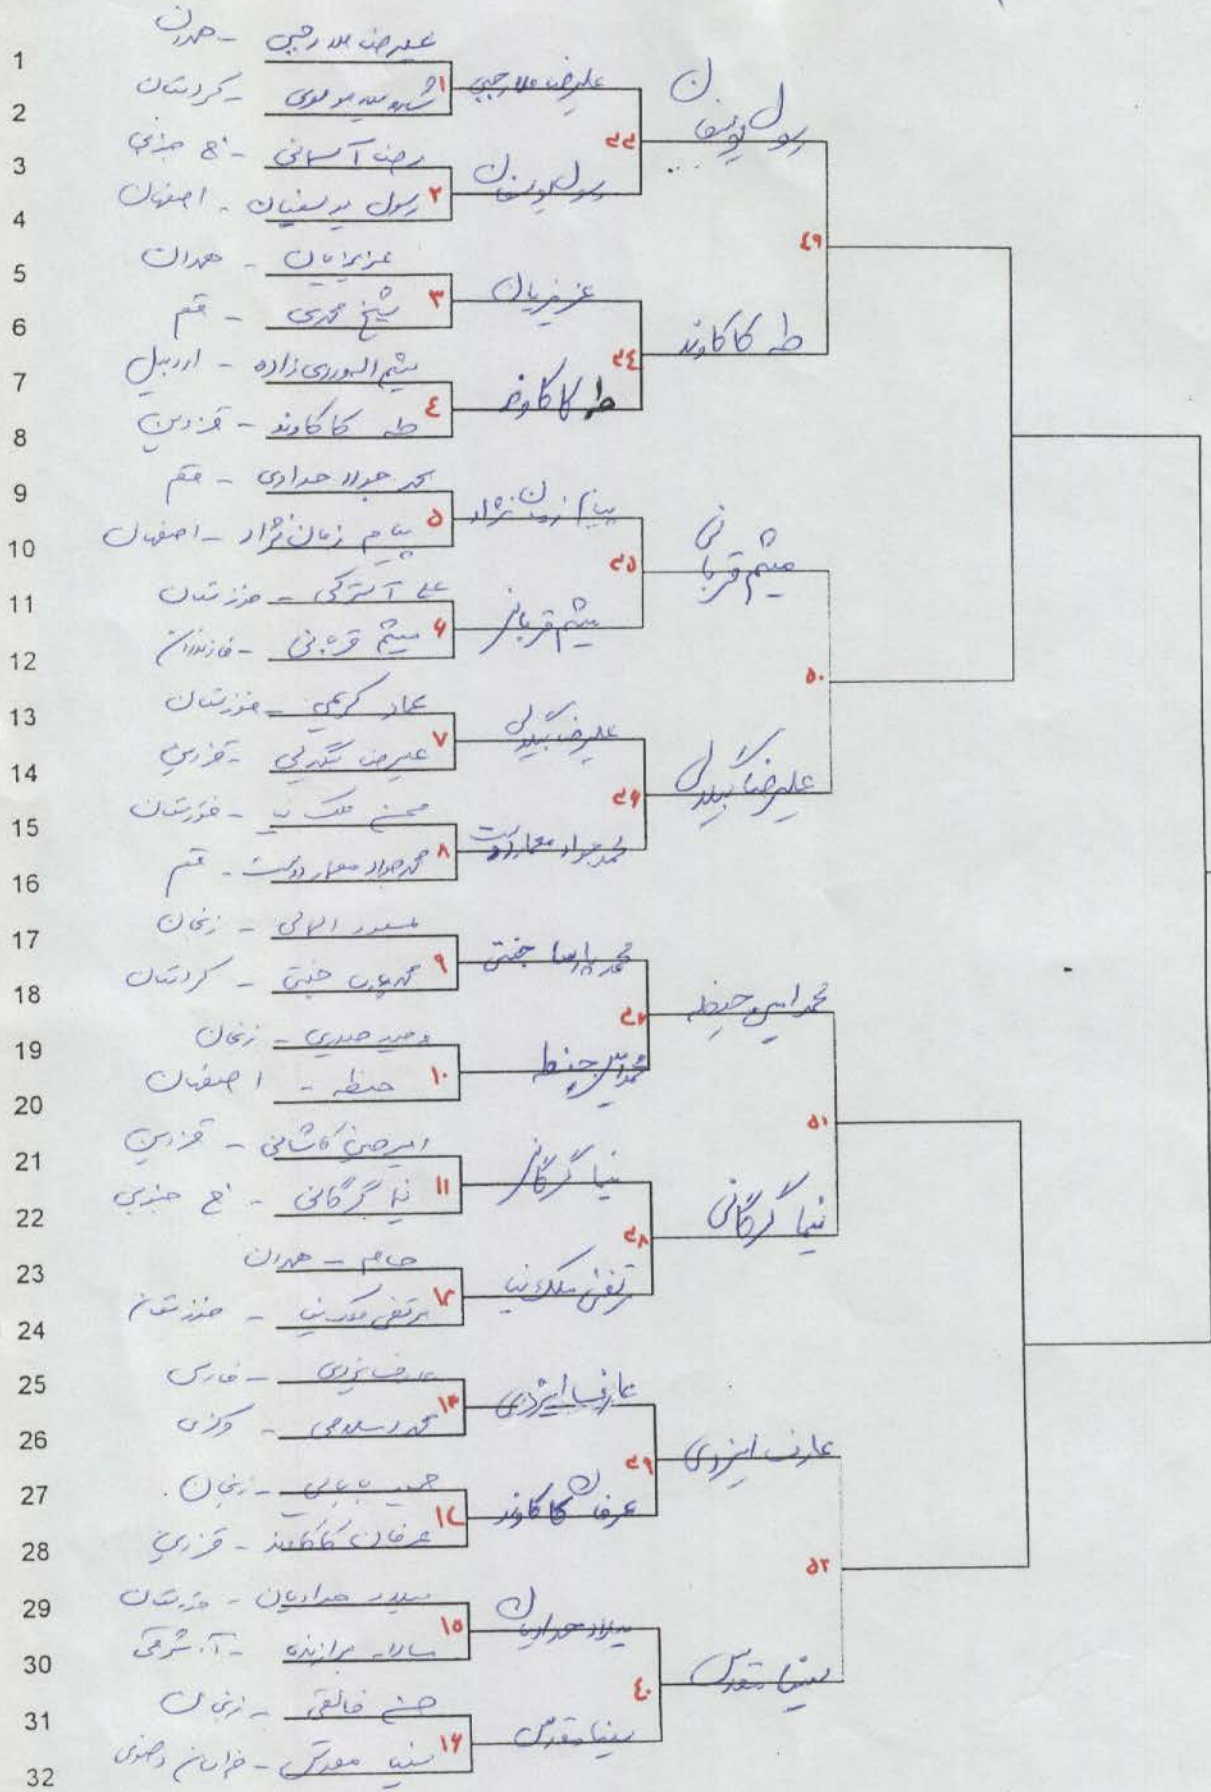 1 علیرضا ملارجبی - همدان
2 - کردستان
۱
3 رضا آسمانی - خ جنوبی
4 رسول یوسفیان - اصفهان
۲
5 عزیزیان - همدان
6 شیخ محمدی - قم
۳
7 میثم الهوردی زاده - اردبیل
8 طه کاکاوند - قزوین
٤
9 محمد جواد حدادی - قم
10 پیام زمان نژاد - اصفهان
۵
11 علی آسترکی - خوزستان
12 میثم قربانی - مازندران
۶
13 عماد کریمی - خوزستان
14 علیرضا بیگدلی - قزوین
۷
15 محسن ملک نیا - خوزستان
16 محمدجواد معماردوست - قم
۸
17 مسعود الهامی - زنجان
18 محمدپارسا جنتی - کردستان
۹
19 وحید حیدری - زنجان
20 حنطه - اصفهان
۱۰
21 امیرحسین کاشانی - قزوین
22 نیما گرگانی - خ جنوبی
۱۱
23 حامد - همدان
24 مرتضی ملک نیا - خوزستان
۱۲
25 عارف ایزدی - فارس
26 محمد اسلامی - مرکزی
۱۳
27 حمید بابایی - زنجان
28 عرفان کاکاوند - قزوین
۱٤
29 میلاد حدادیان - خوزستان
30 سالار برازنده - آ. شرقی
۱۵
31 حسن خالقی - زنجان
32 سینا مقدس - خراسان رضوی
۱۶
علیرضا ملارجبی
رسول یوسفیان
عزیزیان
طه کاکاوند
۳٤
پیام زمان نژاد
میثم قربانی
۳۵
علیرضا بیگدلی
محمدجواد معماردوست
۳۶
محمد پارسا جنتی
محمدامین حنطه
۳۷
نیما گرگانی
مرتضی ملک نیا
۳۸
عارف ایزدی
عرفان کاکاوند
۳۹
میلاد حدادیان
سینا مقدس
٤۰
رسول یوسفیان
طه کاکاوند
٤۹
میثم قربانی
علیرضا بیگدلی
۵۰
محمدامین حنطه
نیما گرگانی
۵۱
عارف ایزدی
سینا مقدس
۵۲